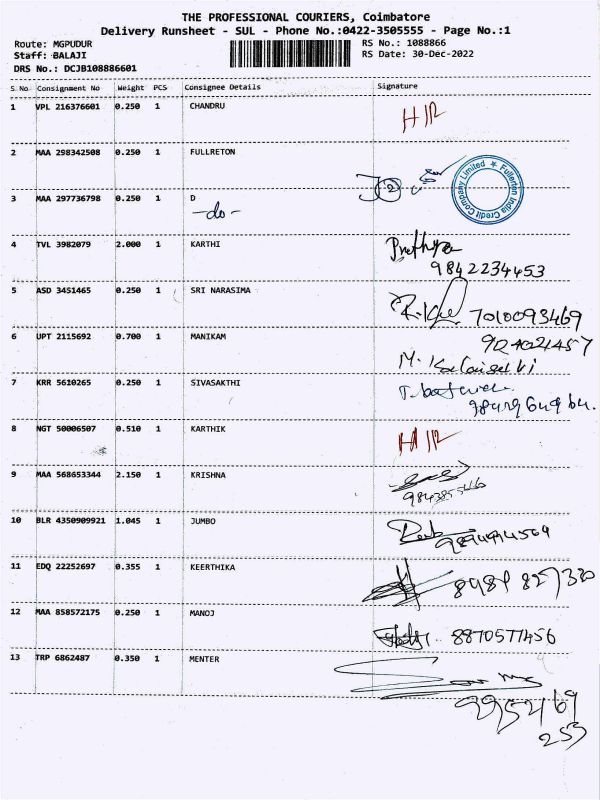 THE PROFESSIONAL COURIERS, Coimbatore
Delivery Runsheet - SUL - Phone No.:0422-3505555 - Page No.:1
Route: MGPUDUR
RS No.: 1088866
Staff: BALAJI
RS Date: 30-Dec-2022
DRS No.: DCJB108886601
S. No Consignment No Weight PCS Consignee Details Signature
1 VPL 216376601 0.250 1 CHANDRU
2 MAA 298342508 0.250 1 FULLRETON
Fullerton India Credit Company Limited ★
3 MAA 297736798 0.250 1 D
-do-
4 TVL 3982079 2.000 1 KARTHI Prathipa
9842234453
5 ASD 3451465 0.250 1 SRI NARASIMA
7010093469
6 UPT 2115692 0.700 1 MANIKAM
M. Kalaiselvi
7 KRR 5610265 0.250 1 SIVASAKTHI
8 NGT 50006507 0.510 1 KARTHIK
9 MAA 568653344 2.150 1 KRISHNA
10 BLR 4350909921 1.045 1 JUMBO
11 EDQ 22252697 0.355 1 KEERTHIKA
12 MAA 858572175 0.250 1 MANOJ
8870577456
13 TRP 6862487 0.350 1 MENTER